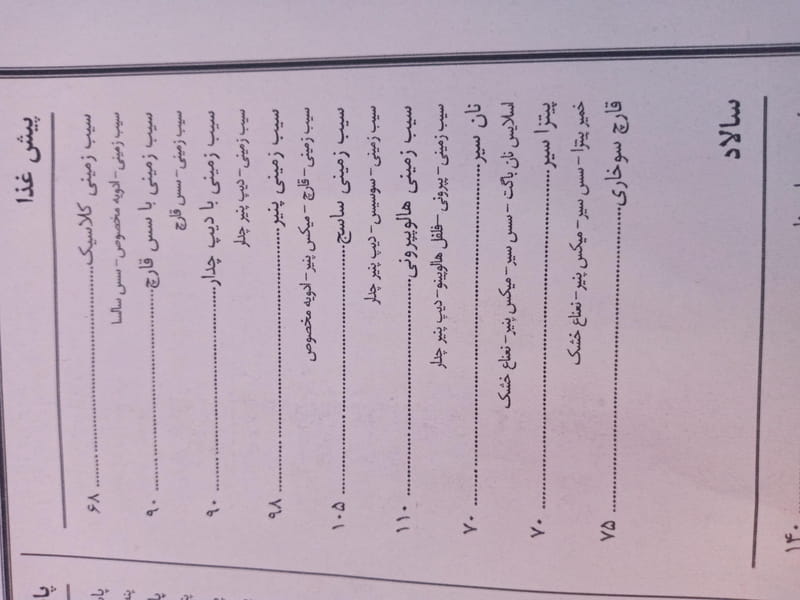 پیش غذا
سیب زمینی کلاسیک ........ ۶۸
سیب زمینی - ادویه مخصوص - سس سالسا
سیب زمینی با سس قارچ ........ ۹۰
سیب زمینی - سس قارچ
سیب زمینی با دیپ چدار ........ ۹۰
سیب زمینی - دیپ پنیر چدار
سیب زمینی پنیر ........ ۹۸
سیب زمینی - قارچ - میکس پنیر - ادویه مخصوص
سیب زمینی ساسج ........ ۱۰۵
سیب زمینی - سوسیس - دیپ پنیر چدار
سیب زمینی هالوپپرونی ........ ۱۱۰
سیب زمینی - پپرونی - فلفل هالوپینو - دیپ پنیر چدار
نان سیر ........ ۷۰
اسلایس نان باگت - سس سیر - میکس پنیر - نعناع خشک
پیتزا سیر ........ ۷۰
خمیر پیتزا - سس سیر - میکس پنیر - نعناع خشک
قارچ سوخاری ........ ۷۵
سالاد
۱۴۰